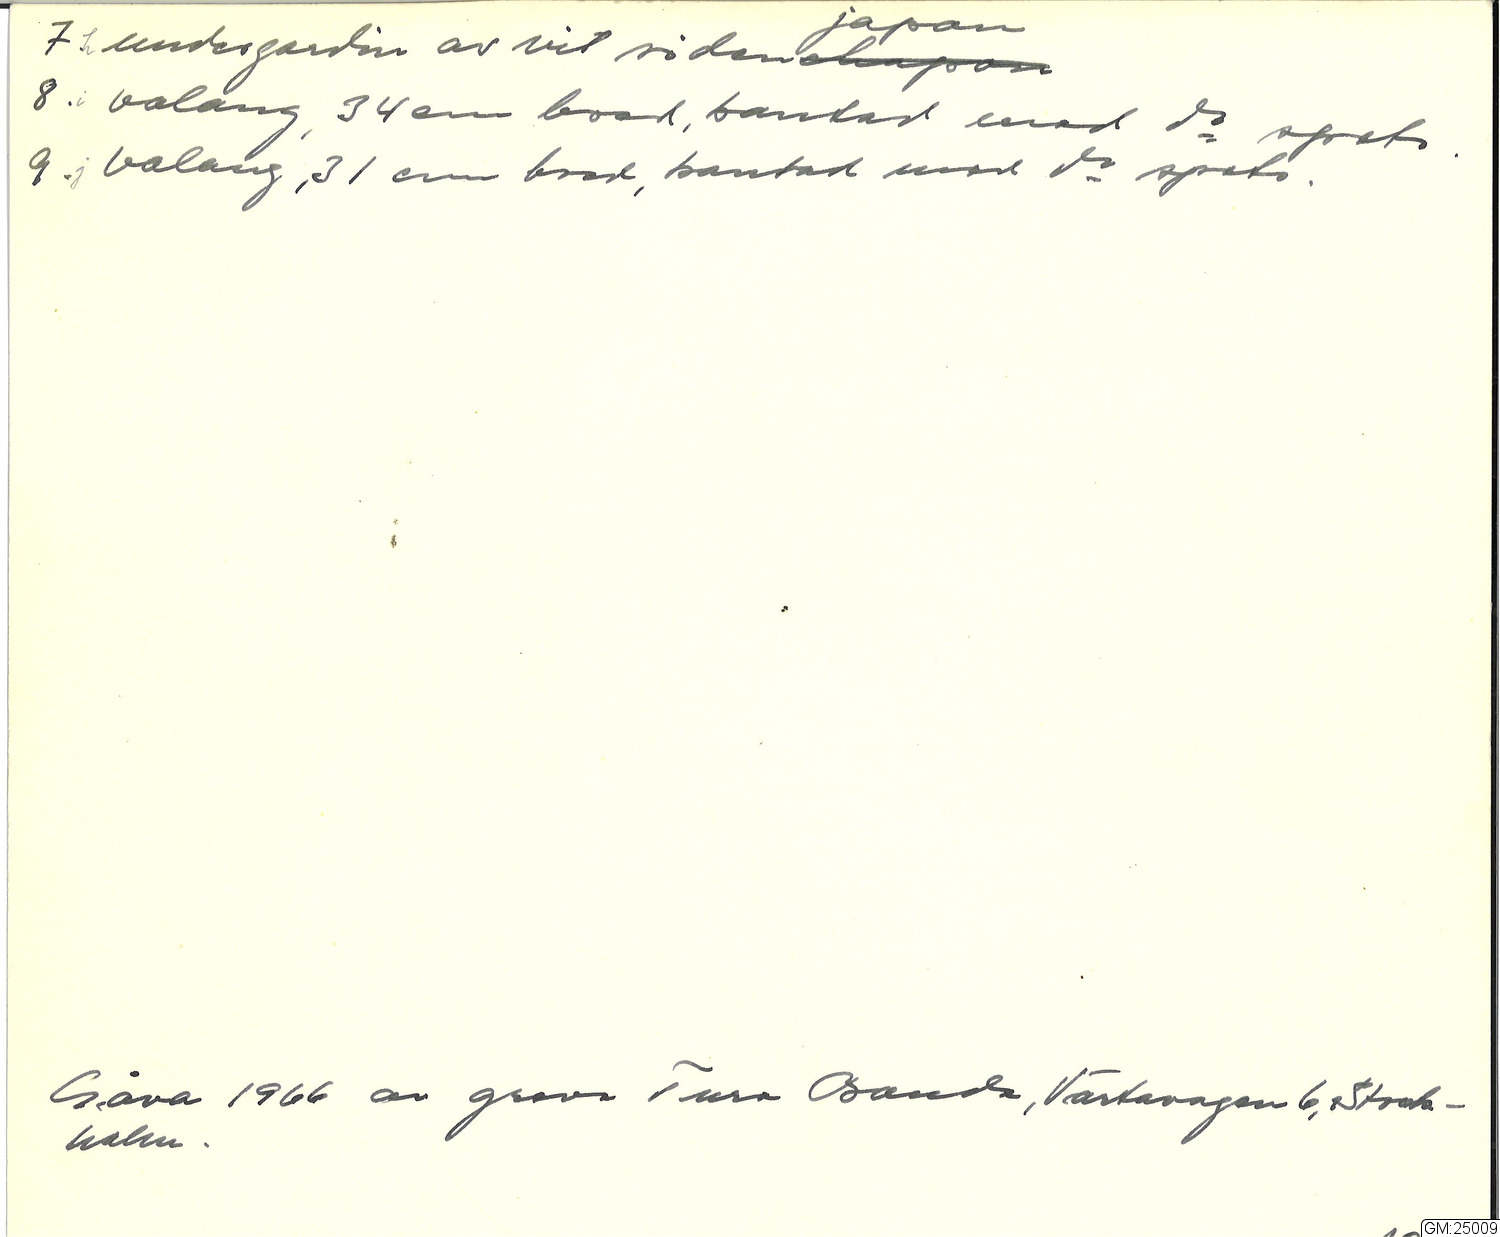 japan
7 h undergardin av vit siden chapon
8. i volang, 34 cm bred, kantad med d:o spets.
9. j volang, 31 cm bred, kantad med d:o spets.
Gåva 1966 av greve Ture Bonde, Värtavägen 6, Stock-
holm.
GM:25009